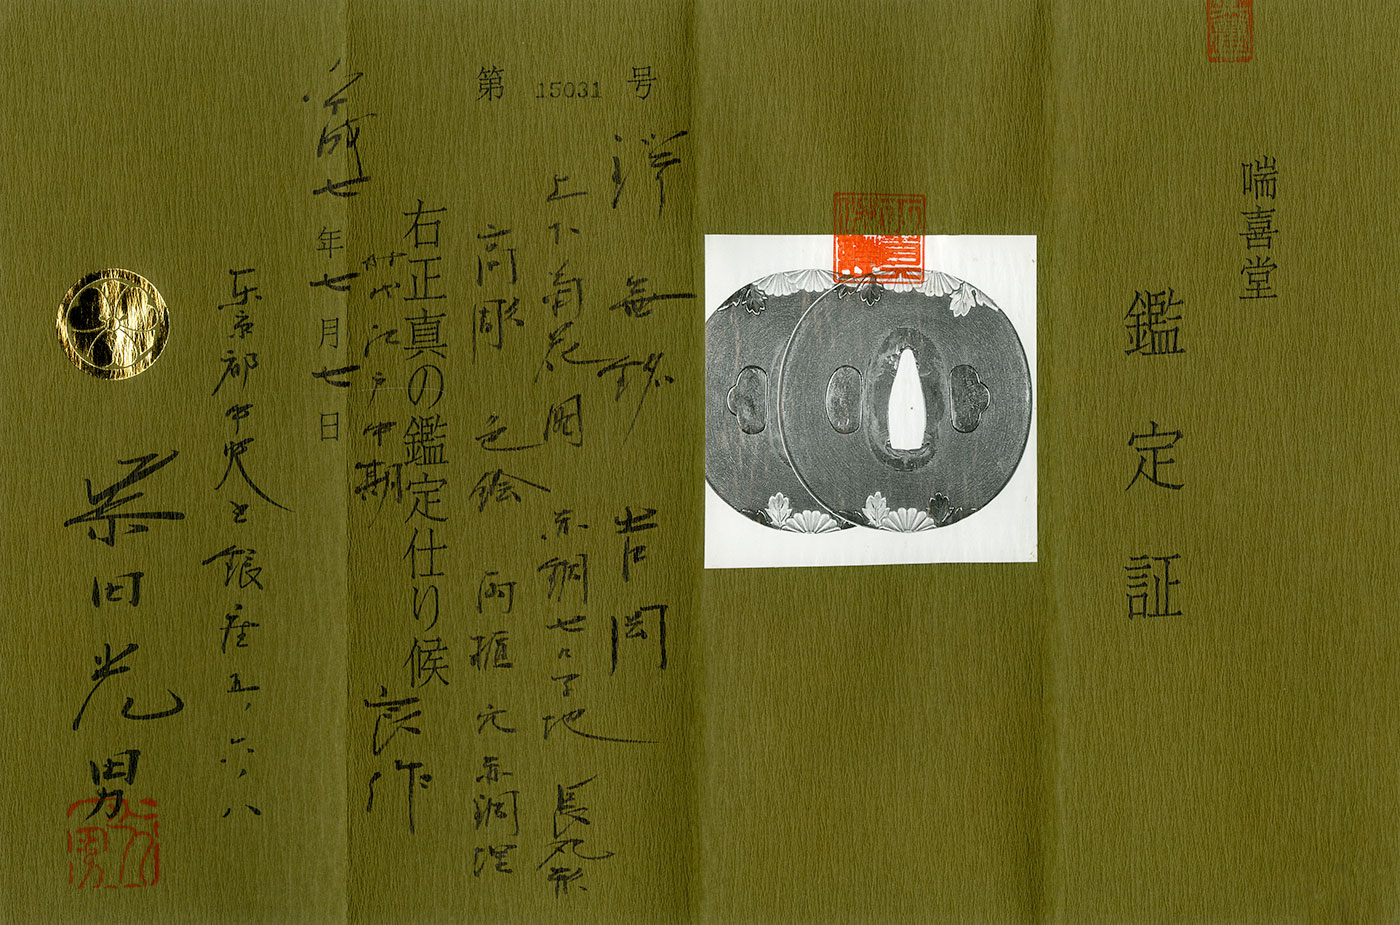 喘喜堂
鑑定証
第 15031 号
鍔 無銘 吉岡
上下菊花図 赤銅七々子地 長丸形
高彫 色絵 両櫃穴赤銅埋
右正真の鑑定仕り候
時代江戸中期 良作
平成七年七月七日
東京都中央区銀座五ノ六ノ八
柴田光男